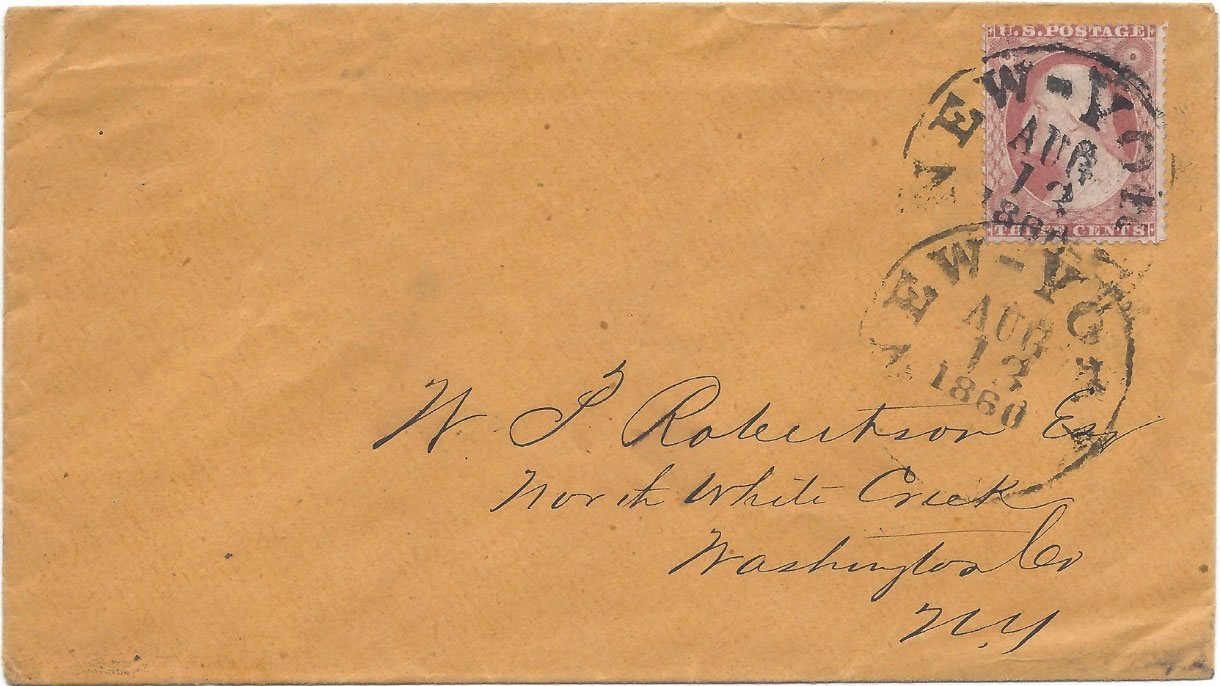 U.S. POSTAGE
THREE CENTS
NEW-YORK
AUG
13
1860
NEW-YORK
AUG
13
1860
W. S. Robertson Esq
North White Creek
Washington Co
N.Y